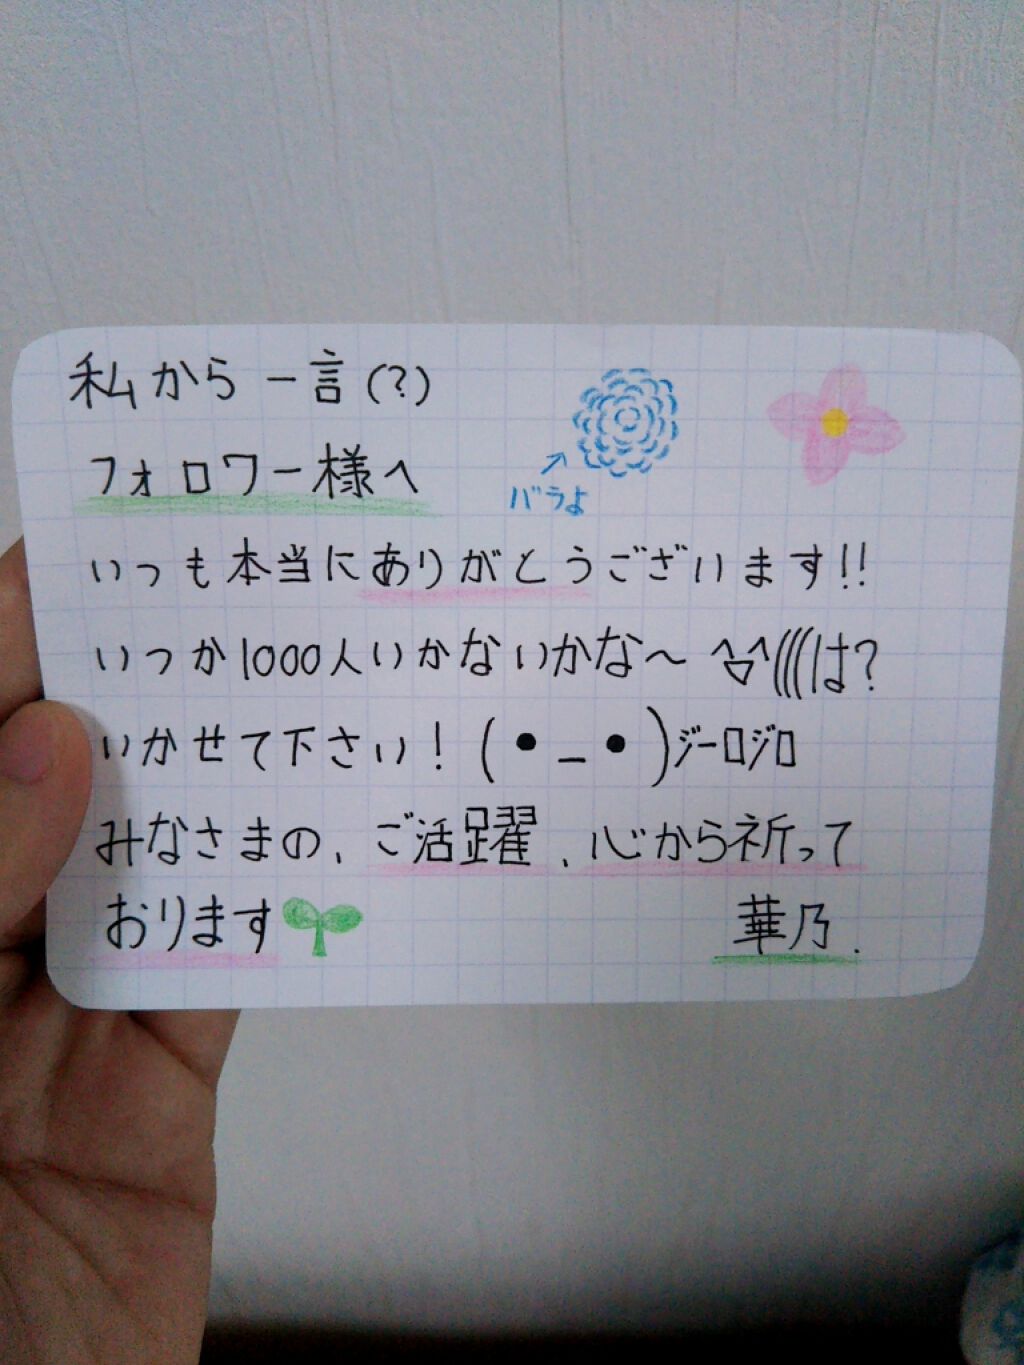 私から一言(?)
フォロワー様へ
バラよ
いっも本当にありがとうございます!!
いっか1000人いかないかな〜 ^▽^((((は?
いかせて下さい! (•_•)ジーロジロ
みなさまの、ご活躍、心から祈って
おります
華乃.